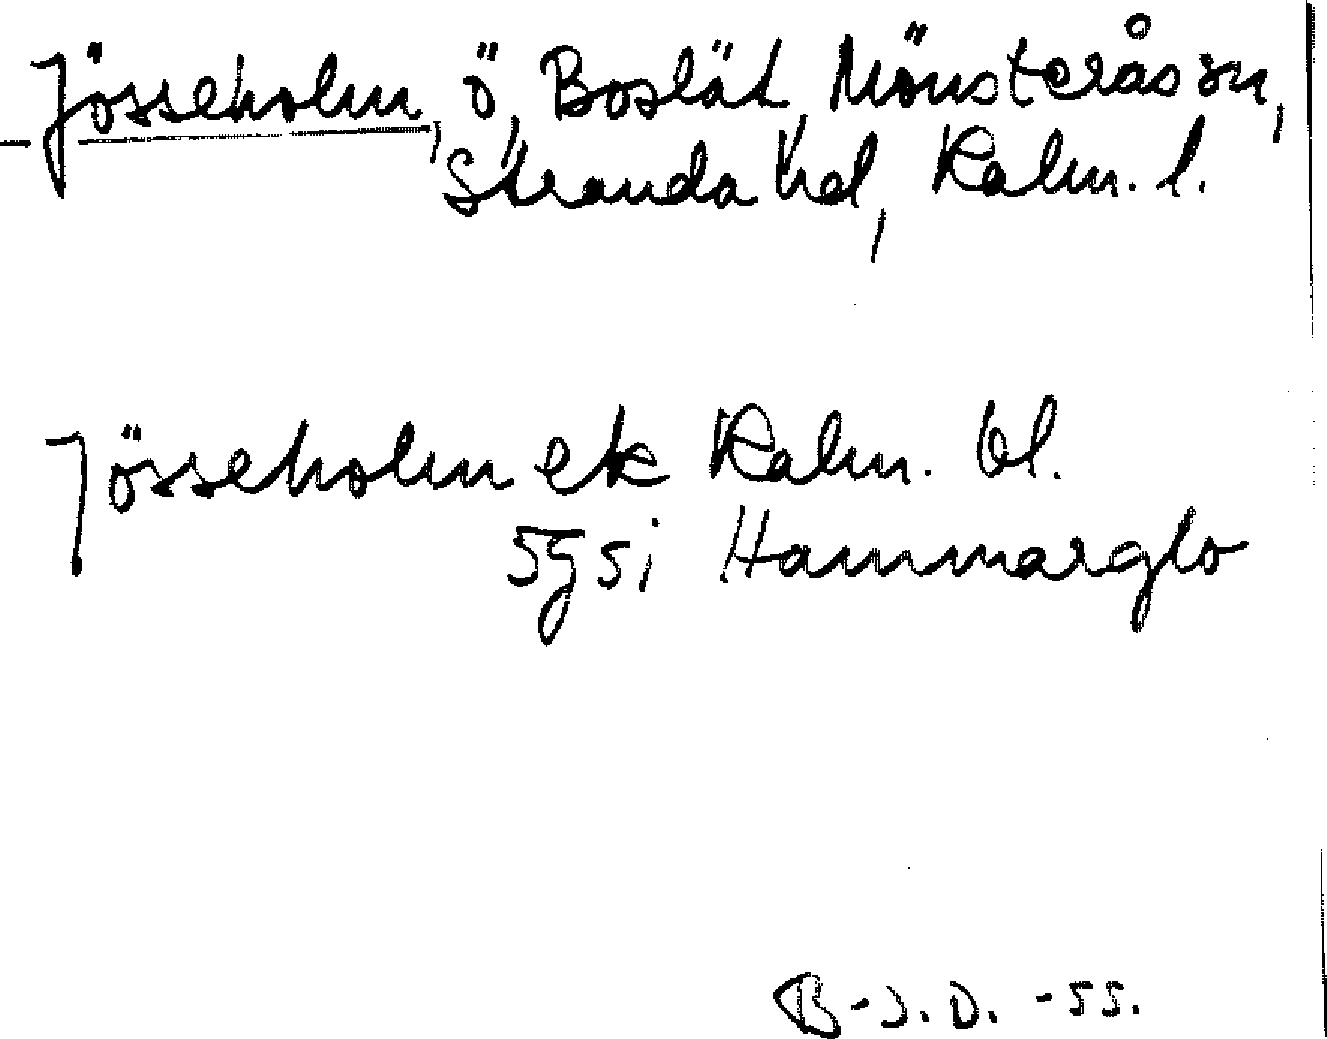 Jösseholm, ö, Boslät, Mönsterås sn,
Stranda hd, Kalm. l.
Jösseholm ek Kalm. bl.
5g5i Hammarglo
B-J.D. -55.